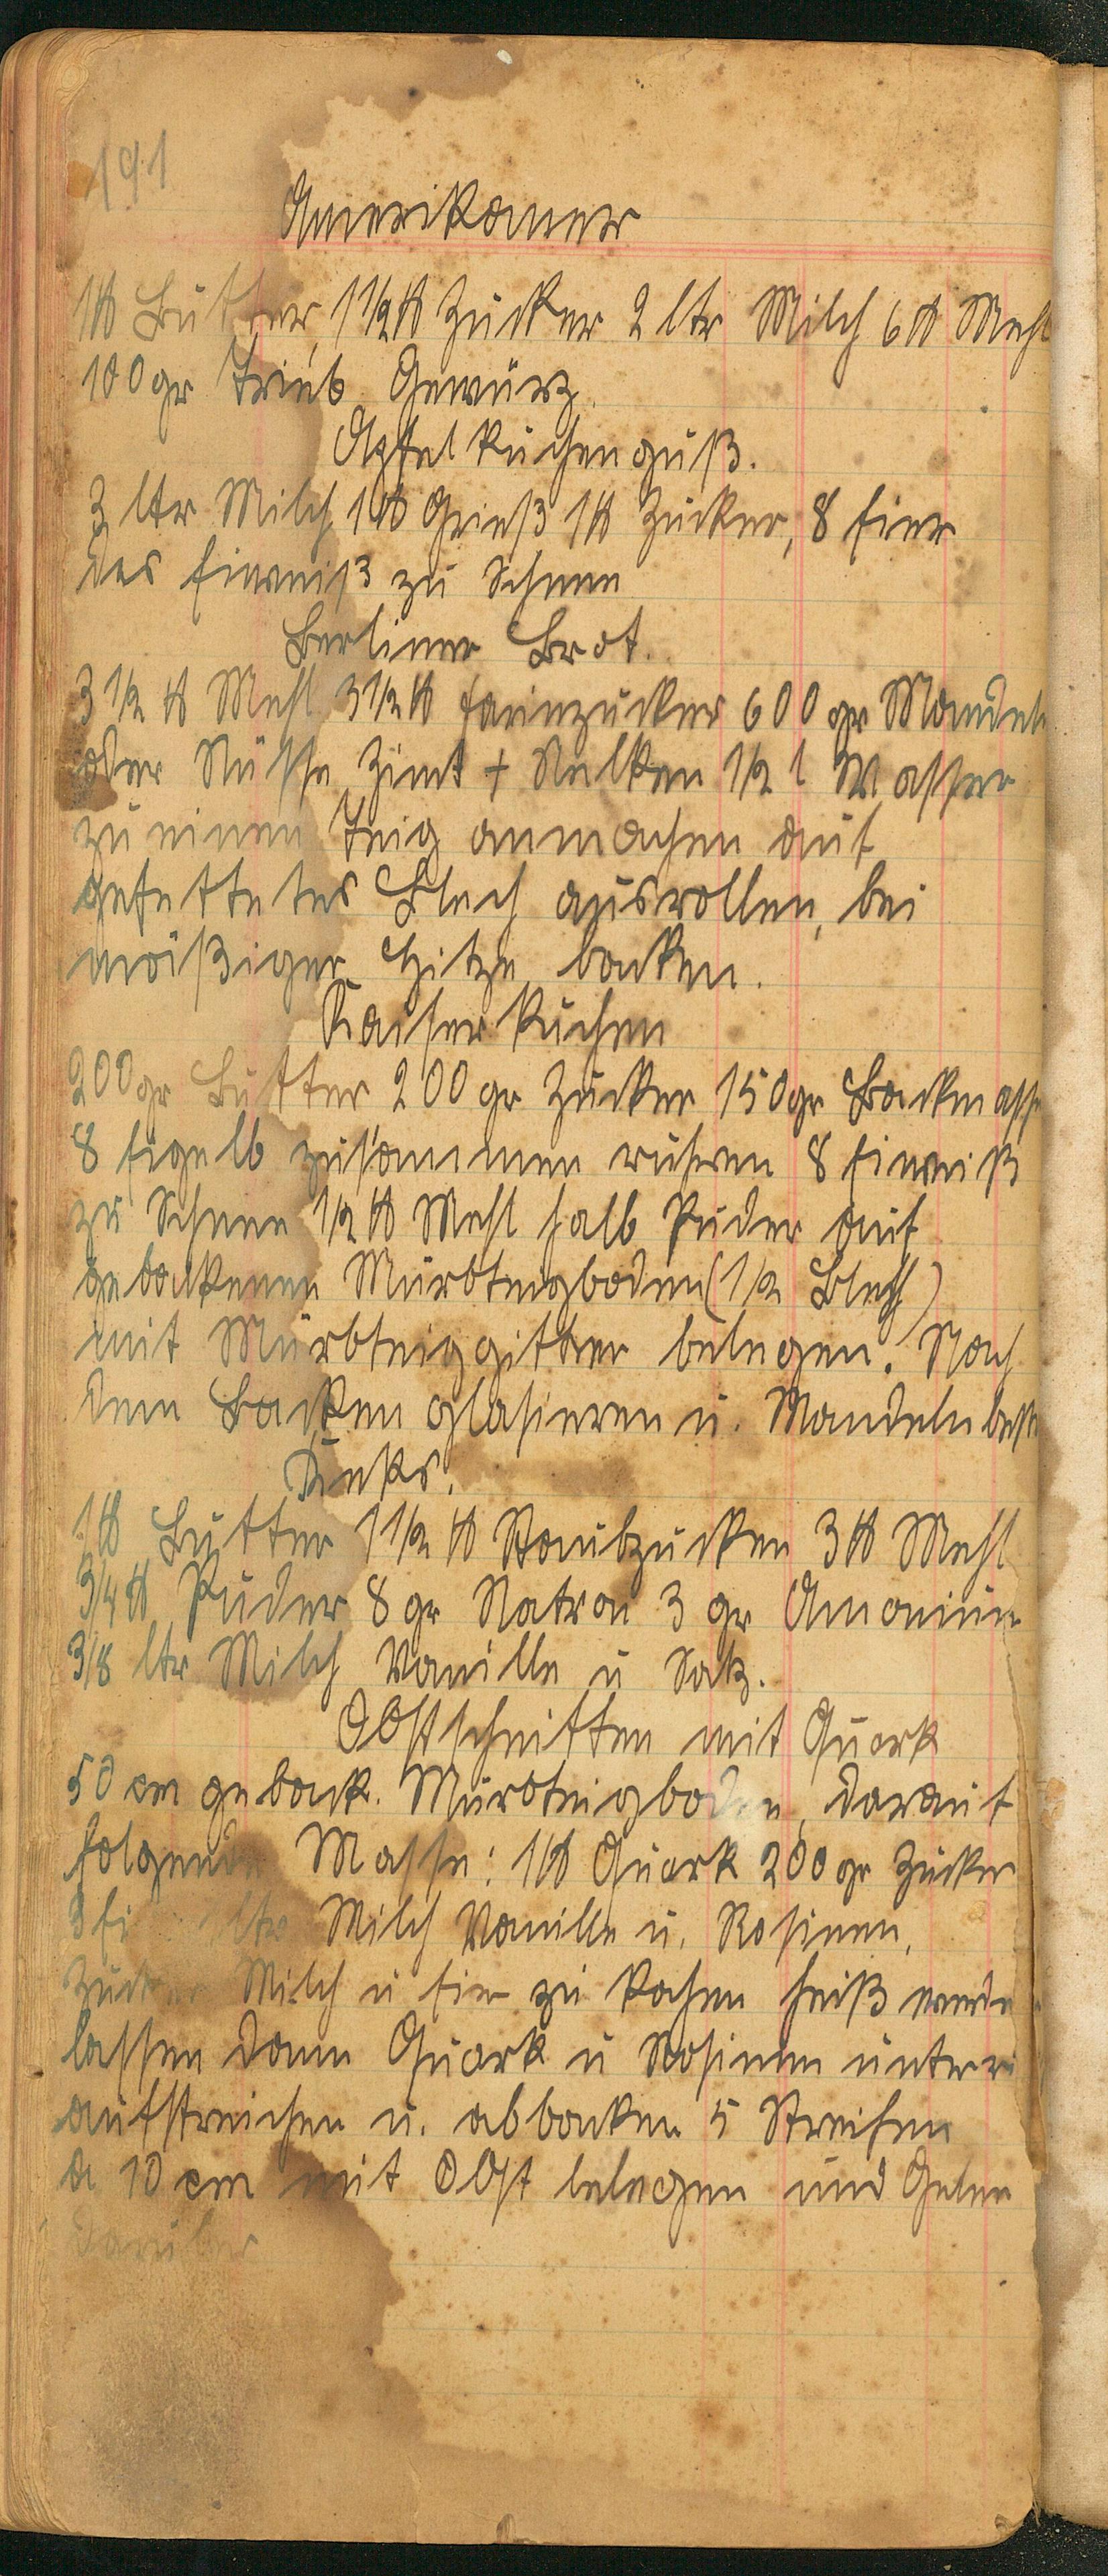 191
Amerikaner
1 ℔ Butter, 1 1/2 ℔ Zucker 2 ltr Milch 6 ℔ Mehl
100 gr Trieb Gewürz.
Apfelkuchenguß.
3 ltr Milch 1 ℔ Grieß 1 ℔ Zucker, 8 Eier
das Eiweiß zu Schnee
Berliner Brot.
3 1/2 ℔ Mehl 3 1/2 ℔ Farinzucker 600 gr Mandeln
oder Nüsse Zimt + Nelken 1/2 l Wasser
zu einen Teig anmachen auf
gefettetes Blech ausrollen, bei
mäßiger Hitze backen.
Kaiserkuchen
200 gr Butter 200 gr Zucker 150 gr Backmasse
8 Eigelb zusammen rühren 8 Eiweiß
zu Schnee 1/2 ℔ Mehl halb Puder auf
gebackenen Mürbteigboden (1/2 Blech)
mit Mürbteiggitter belegen. Nach
dem Backen glasieren u. Mandeln
Keks.
1 ℔ Butter 1 1/2 ℔ Staubzucken 3 ℔ Mehl
3/4 ℔ Puder 8 gr Natron 3 gr Amonium
3/8 ltr Milch Vanille u Salz.
Obstschnitten mit Quark
50 cm geback. Mürbteigboden, darauf
folgende Masse: 1 ℔ Quark 200 gr Zucker
ltr Milch Vanille u. Rosinen,
Zucker Milch u Eier zu kochen heiß werde
lassen dann Quark u Rosinen unterri
aufstreichen u. abbacken 5 Streifen
a 10 cm mit Obst belegen und Gelee
darüber